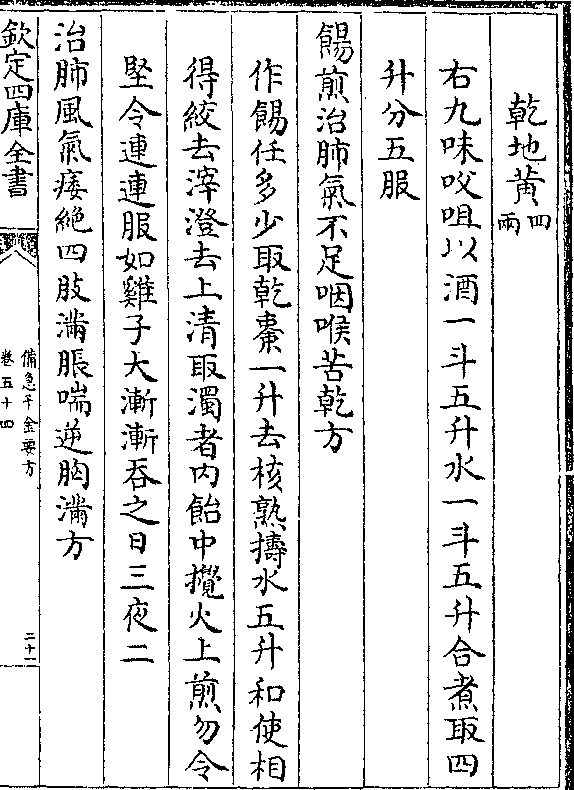 乾地黃四兩
右九味㕮咀以酒一斗五升水一斗五升合煮取四
升分五服
餳煎治肺氣不足咽喉苦乾方
作餳任多少取乾棗一升去核熟擣水五升和使相
得絞去滓澄去上清取濁者内飴中攪火上煎勿令
堅令連連服如雞子大漸漸吞之日三夜二
治肺風氣痿絶四肢滿脹喘逆胸滿方
欽定四庫全書
備急千金要方
卷五十四
二十一